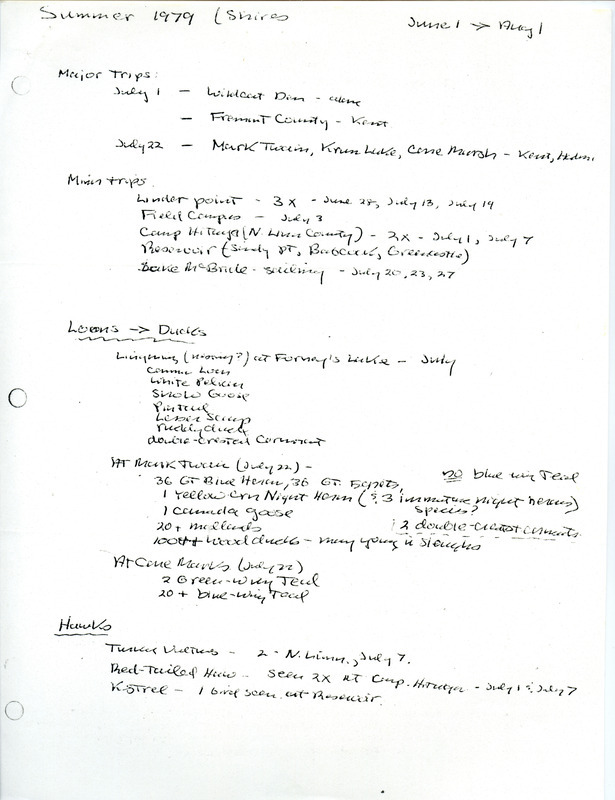 Summer 1979 (Shires June 1 → Aug 1
Major Trips:
July 1 — Wildcat Den - alone
— Fremont County - Kent
July 22 — Mark Twain, Krum Lake, Cone Marsh - Kent,
Minor trips
Linder point - 3x - June 28, July 13, July 19
Field Campus - July 3
Camp Hitaga (N. Linn County) - 2x - July 1, July 7
Reservoir (Sandy Pt, Babcock, Greencastle)
Lake McBride - sailing - July 20, 23, 27
Loons → Ducks
Lingering (nesting?) at Forney's Lake - July
Common Loon
White Pelican
Snow Goose
Pintail
Lesser Scaup
ruddy duck
double-crested Cormorant
At Mark Twain (July 22) -
36 GT Blue Heron, 36 GT. Egrets, 20 blue wing Teal
1 Yellow Crn Night Heron (& 3 immature night herons)
species?
1 canada goose
20+ mallards 2 double-crested cormorants
100++ wood ducks - many young in sloughs
At Cone Marsh (July 22)
2 Green-wing Teal
20 + blue-wing Teal
Hawks
Turkey Vultures - 2 - N. Linn, July 7.
Red-Tailed Hawk - seen 2X at Camp Hitaga - July 1 & July 7
Kestrel - 1 bird seen at Reservoir.